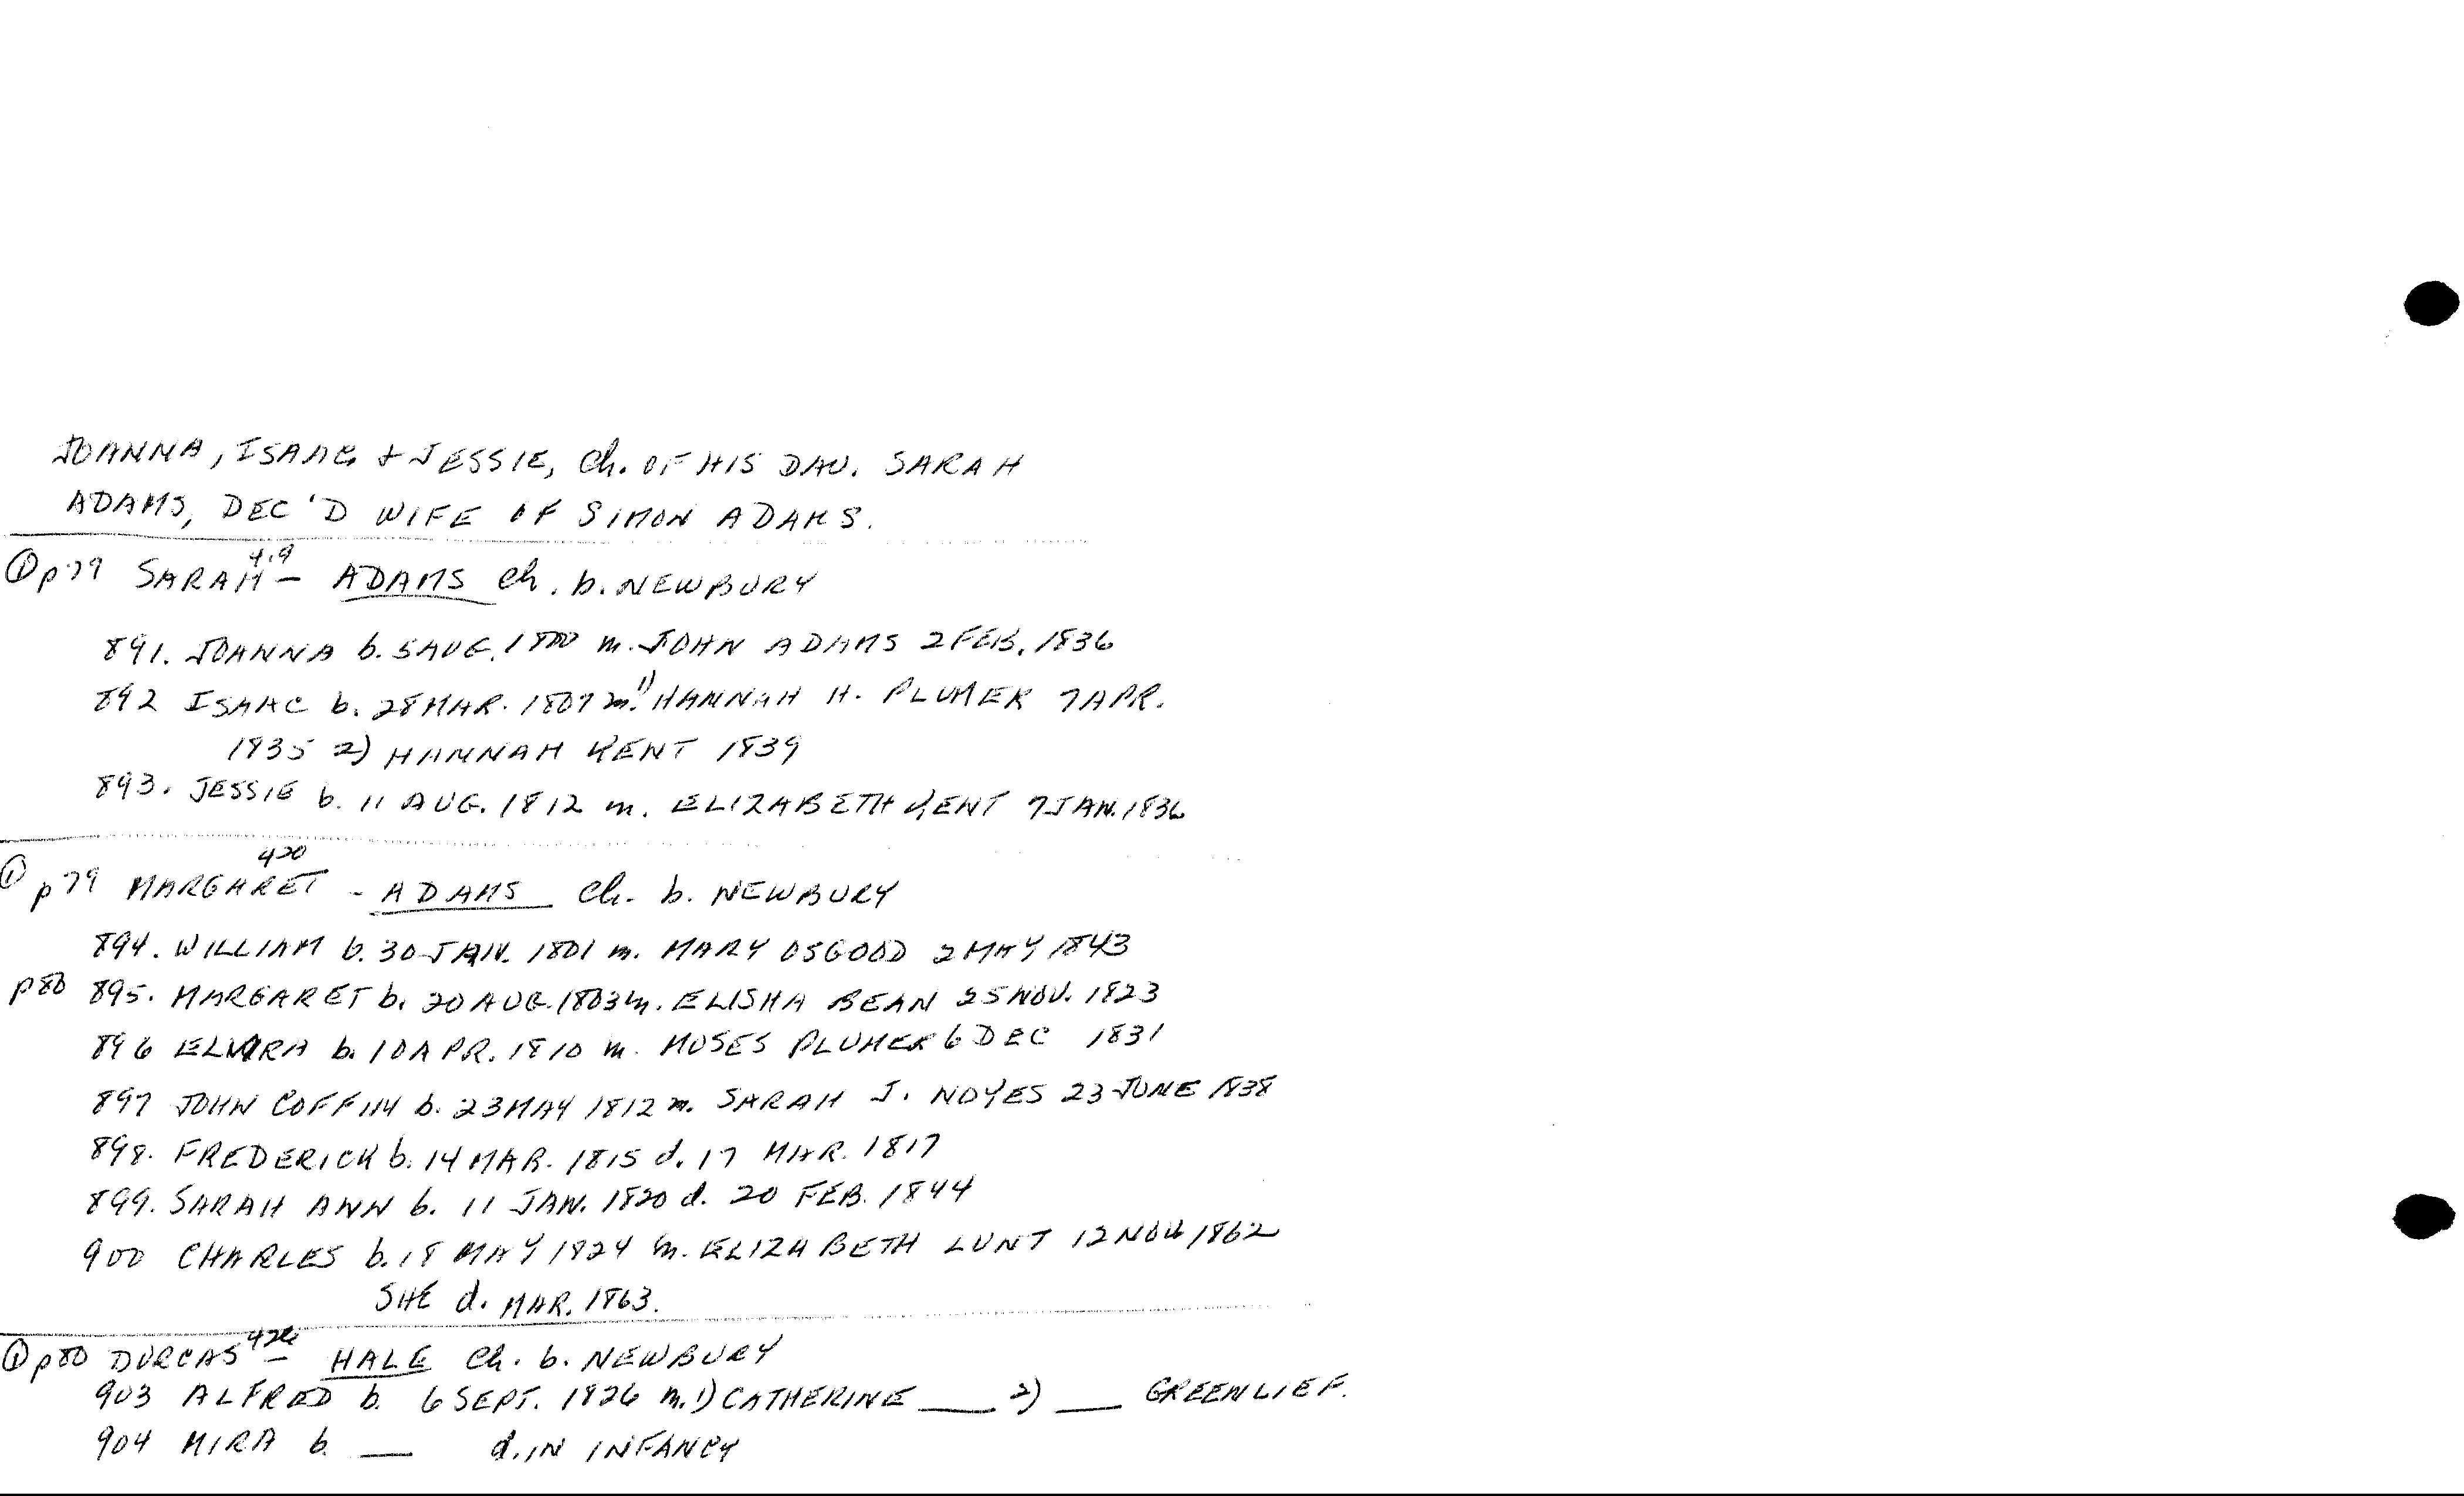 JOANNA, ISAAC & JESSIE, Ch. OF HIS DAU. SARAH
ADAMS, DEC'D WIFE OF SIMON ADAMS.
① p79 SARAH 419 — ADAMS Ch. b. NEWBURY
891. JOANNA b. 5 AUG. 1800 m. JOHN ADAMS 2 FEB. 1836
892 ISAAC b. 28 MAR. 1807 m. 1) HANNAH H. PLUMER 7 APR.
1835 2) HANNAH KENT 1839
893. JESSIE b. 11 AUG. 1812 m. ELIZABETH KENT 7 JAN. 1836
① p79 MARGARET 420 - ADAMS Ch. b. NEWBURY
894. WILLIAM b. 30 JAN. 1801 m. MARY OSGOOD 2 MAY 1843
p80 895. MARGARET b. 20 AUG. 1803 m. ELISHA BEAN 25 NOV. 1823
896 ELMIRA b. 10 APR. 1810 m. MOSES PLUMER 6 DEC 1831
897 JOHN COFFIN b. 23 MAY 1812 m. SARAH J. NOYES 23 JUNE 1838
898. FREDERICK b. 14 MAR. 1815 d. 17 MAR. 1817
899. SARAH ANN b. 11 JAN. 1820 d. 20 FEB. 1844
900 CHARLES b. 18 MAY 1824 m. ELIZABETH LUNT 12 NOV 1862
SHE d. MAR. 1863.
① p80 DORCAS — HALE Ch. b. NEWBURY
903 ALFRED b. 6 SEPT. 1826 m. 1) CATHERINE ___ 2) ___ GREENLIEF.
904 MIRA b. ___ d. IN INFANCY